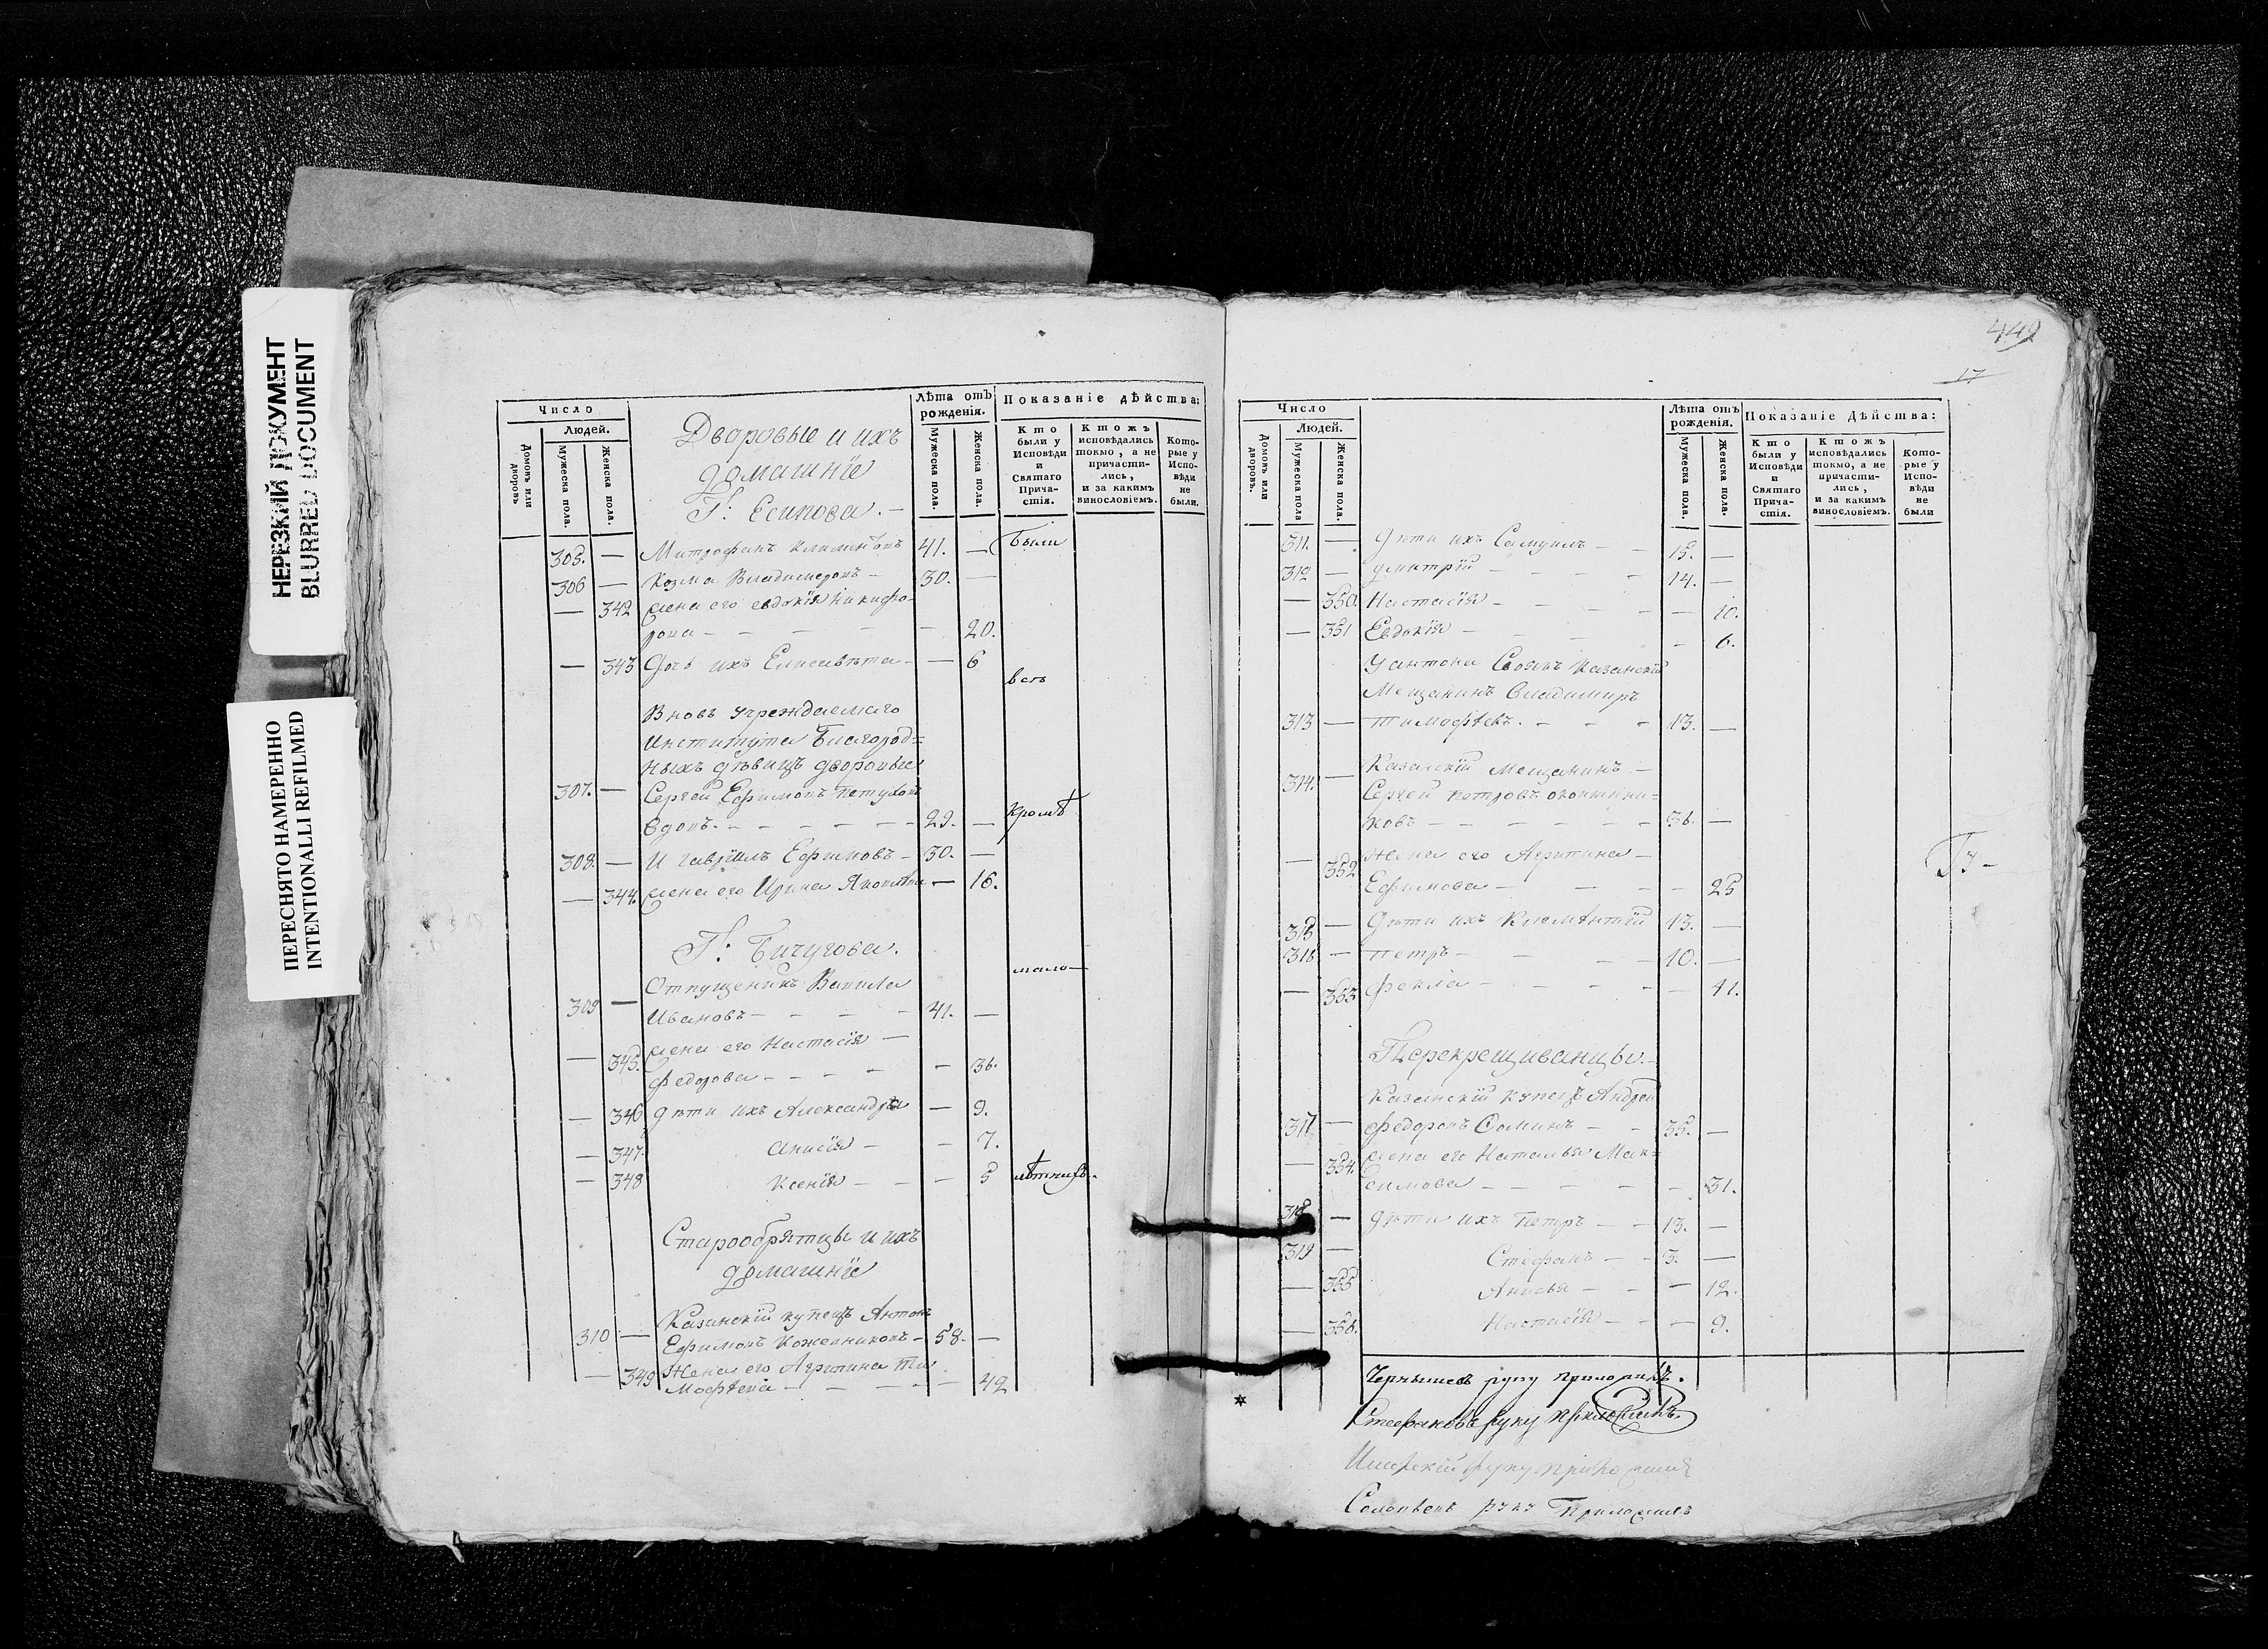 НЕРЕЗКИЙ ДОКУМЕНТ
BLURRED DOCUMENT
ПЕРЕСНЯТО НАМЕРЕННО
INTENTIONALLI REFILMED
Число
Людей.
Домовъ или дворовъ
Мужеска пола.
Женска пола.
Лѣта отъ рожденія.
Мужеска пола.
Женска пола.
Показаніе дѣйства:
Кто были у Исповѣди и Святаго Прича-стія.
Ктожъ исповѣдались токмо, а не причасти-лись, и за какимъ винословіемъ.
Кото-рые у Испо-вѣди не были.
Дворовые и ихъ
домашніе
Г: Есипова. –
305. — Митрофанъ Климентовъ 41. — были
306 — Козма Владимеровъ – 30. —
— 342 жена его евдокія Никифо-
рова – – – – – 20.
— 343 Дочь ихъ Елисавѣта – — 6
всѣ
Вновь учреждаемаго
Института Благород=
ныхъ дѣвицъ дворовые
307. — Сергей Ефимовъ Петухов
вдовъ. – – – – – 29. — кромѣ
308. — И Гавріилъ Ефимовъ – 30. —
— 344. жена его Ирина Яковлева — 16.
Г: Бичугова.
мало—
Отпущеникъ Вавила
309 — Ивановъ – – – – 41. —
— 345. жена его Настасія —
Федорова – – – – – 36.
— 346 дѣти ихъ Александра – 9.
— 347. Анисія – – 7.
— 348 Ксенія – – – 5 лѣтнихъ.
Старообрятцы и ихъ
домашніе
Казанскій купецъ Антонъ
310 — Ефимовъ Кожевниковъ – 58. —
— 349 Жена его Агрипина Ти
мофѣева – – – – 42
449
17
Число
Людей.
Домовъ или дворовъ.
Мужеска пола
Женска пола.
Лѣта отъ рожденія.
Мужеска пола.
Женска пола.
Показаніе Дѣйства:
Кто были у Исповѣди и Святаго Прича-стія.
Ктожъ исповѣдались токмо, а не причасти-лись, и за какимъ винословіемъ.
Кото-рые у Испо-вѣди не были
311. — Дѣти ихъ Самуилъ – – 15. —
312 — Дмитрій – – – – 14. —
— 350. Настасія – – – – — 10.
— 351 Евдокія – – – – 6.
У антона Своякъ Казанскій
Мещанинъ Владимиръ
313 — Тимофѣевъ. – – – 13. —
314. — Казанскій Мещанинъ –
Сергей Петровъ
ковъ – – – – – – 36. —
— 352 Жена его Агрипина –
Ефимова – – – – 25
Гу –
315 — Дѣти ихъ Климентій 13. —
316 — Петръ – – – – 10. —
— 353 Фекла – – – – — 41.
Перекрещиванцы. –
Казанскій купецъ Андрей
317 — Федоровъ Фоминъ – – 35. —
— 354. жена его Наталья Мак=
симова – – – – – 31.
318 — дѣти ихъ Петръ – – 13. —
319 — Стефанъ – – 3. —
— 355 Анисья – – — 12.
— 356. Настасія – – — 9.
Чернышевъ руку приложилъ.
Стефановъ руку приложилъ
руку приложилъ
Соловьевъ руку Приложилъ